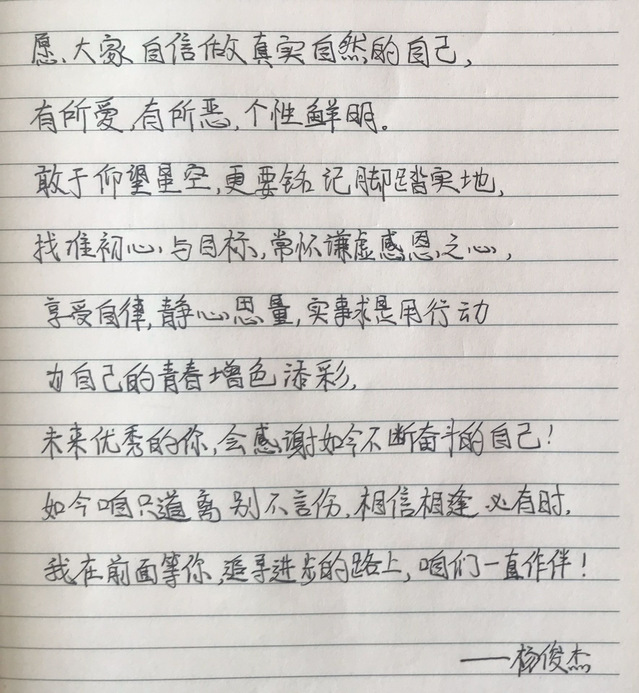 愿大家自信做真实自然的自己,
有所爱,有所恶,个性鲜明。
敢于仰望星空,更要铭记脚踏实地,
找准初心与目标,常怀谦虚感恩之心,
享受自律,静心思量,实事求是用行动
为自己的青春增色添彩,
未来优秀的你,会感谢如今不断奋斗的自己!
如今咱只道离别不言伤,相信相逢必有时,
我在前面等你,追寻进步的路上,咱们一直作伴!
——杨俊杰